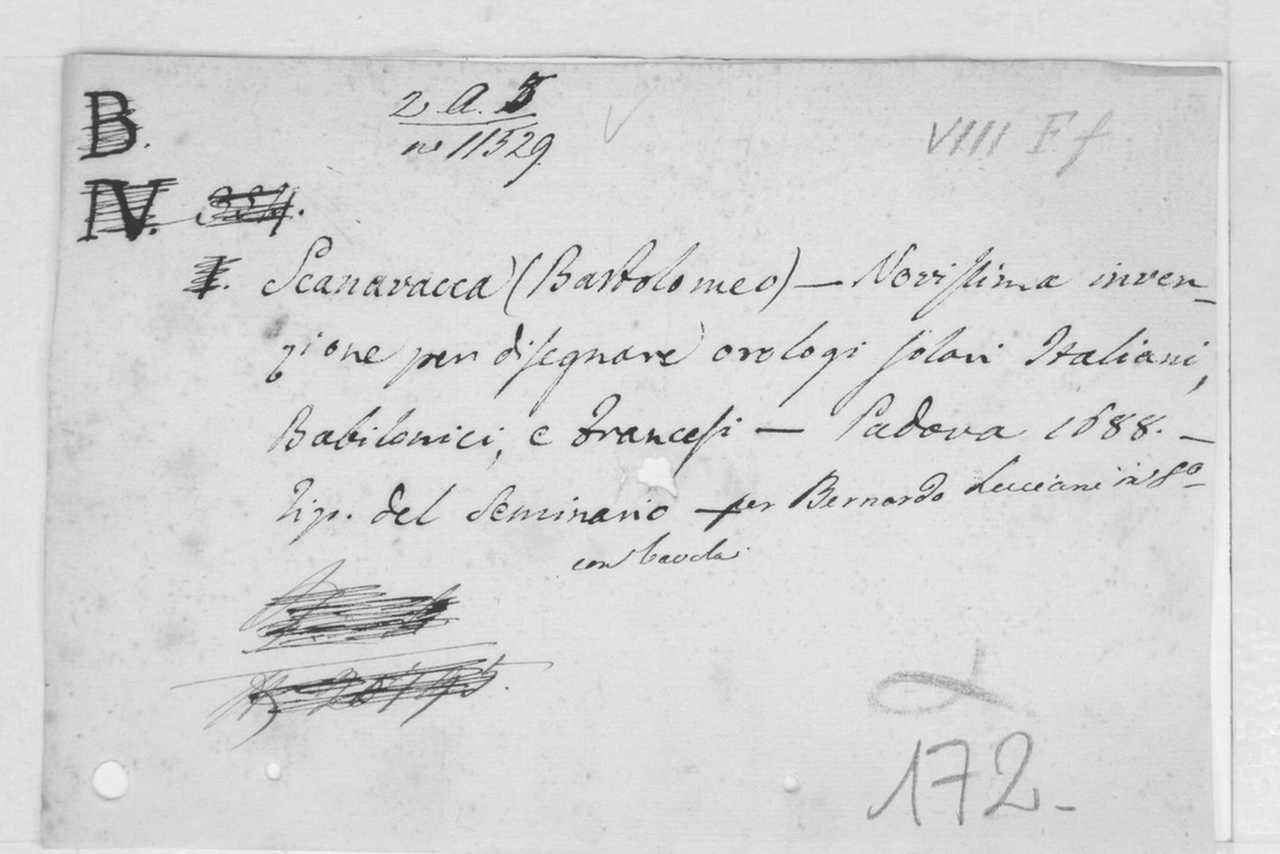 2 A. 3
nº 11529
VIII Ff
B.
IV.
1. Scanavacca (Bartolomeo) — Novissima inven-
zione per disegnare orologi solari Italiani,
Babilonici, e Francesi — Padova 1688. —
Tip. del Seminario — per Bernardo Lucciani in 8º
con tavola.
172-